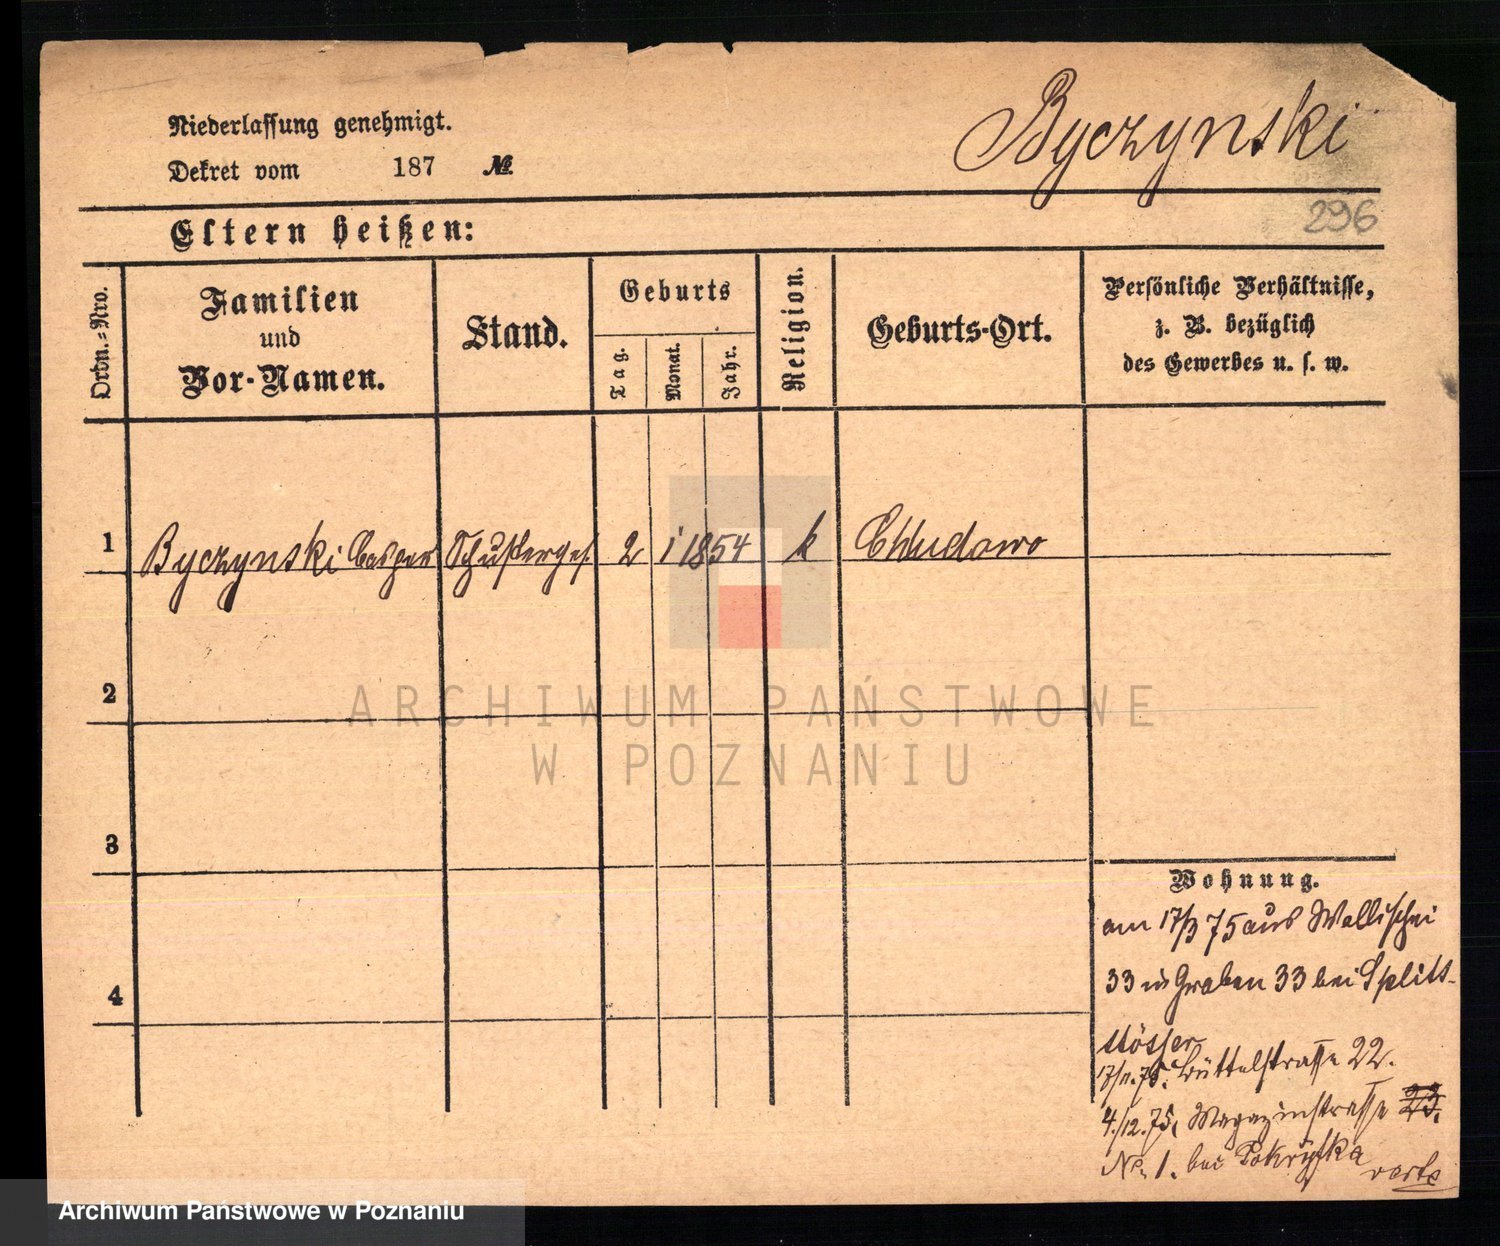 Byczynski
Niederlassung genehmigt.
Dekret vom 187 №
296
Eltern heißen:
Ordn.-Nro.
Familien
und
Vor-Namen.
Stand.
Geburts
Tag.
Monat.
Jahr.
Religion.
Geburts-Ort.
Persönliche Verhältnisse,
z. B. bezüglich
des Gewerbes u. s. w.
1 Byczynski Casper Schusterges. 2 1 1854 k Chludowo
2
3
4
Wohnung.
am 17/3 75 aus Wallischei
33 in Graben 33 bei Splitt-
stösser
17/11.75. Büttelstrasse 22.
4./12.75, Magazinstrasse 23.
No. 1. bei Pokrytka
verte
ARCHIWUM PAŃSTWOWE
W POZNANIU
Archiwum Państwowe w Poznaniu